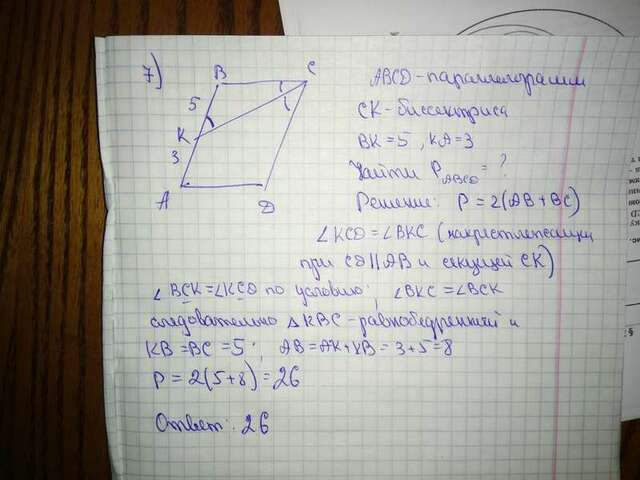 7)
B
C
5
K
3
A
D
ABCD - параллелограмм
CK - биссектриса
BK = 5, KA = 3
Найти P_ABCD = ?
Решение: P = 2(AB + BC)
∠KCD = ∠BKC (накрестлежащие
при CD || AB и секущей CK)
∠BCK = ∠KCD по условию; ∠BKC = ∠BCK
следовательно △KBC - равнобедренный и
KB = BC = 5; AB = AK + KB = 3 + 5 = 8
P = 2(5 + 8) = 26
Ответ: 26